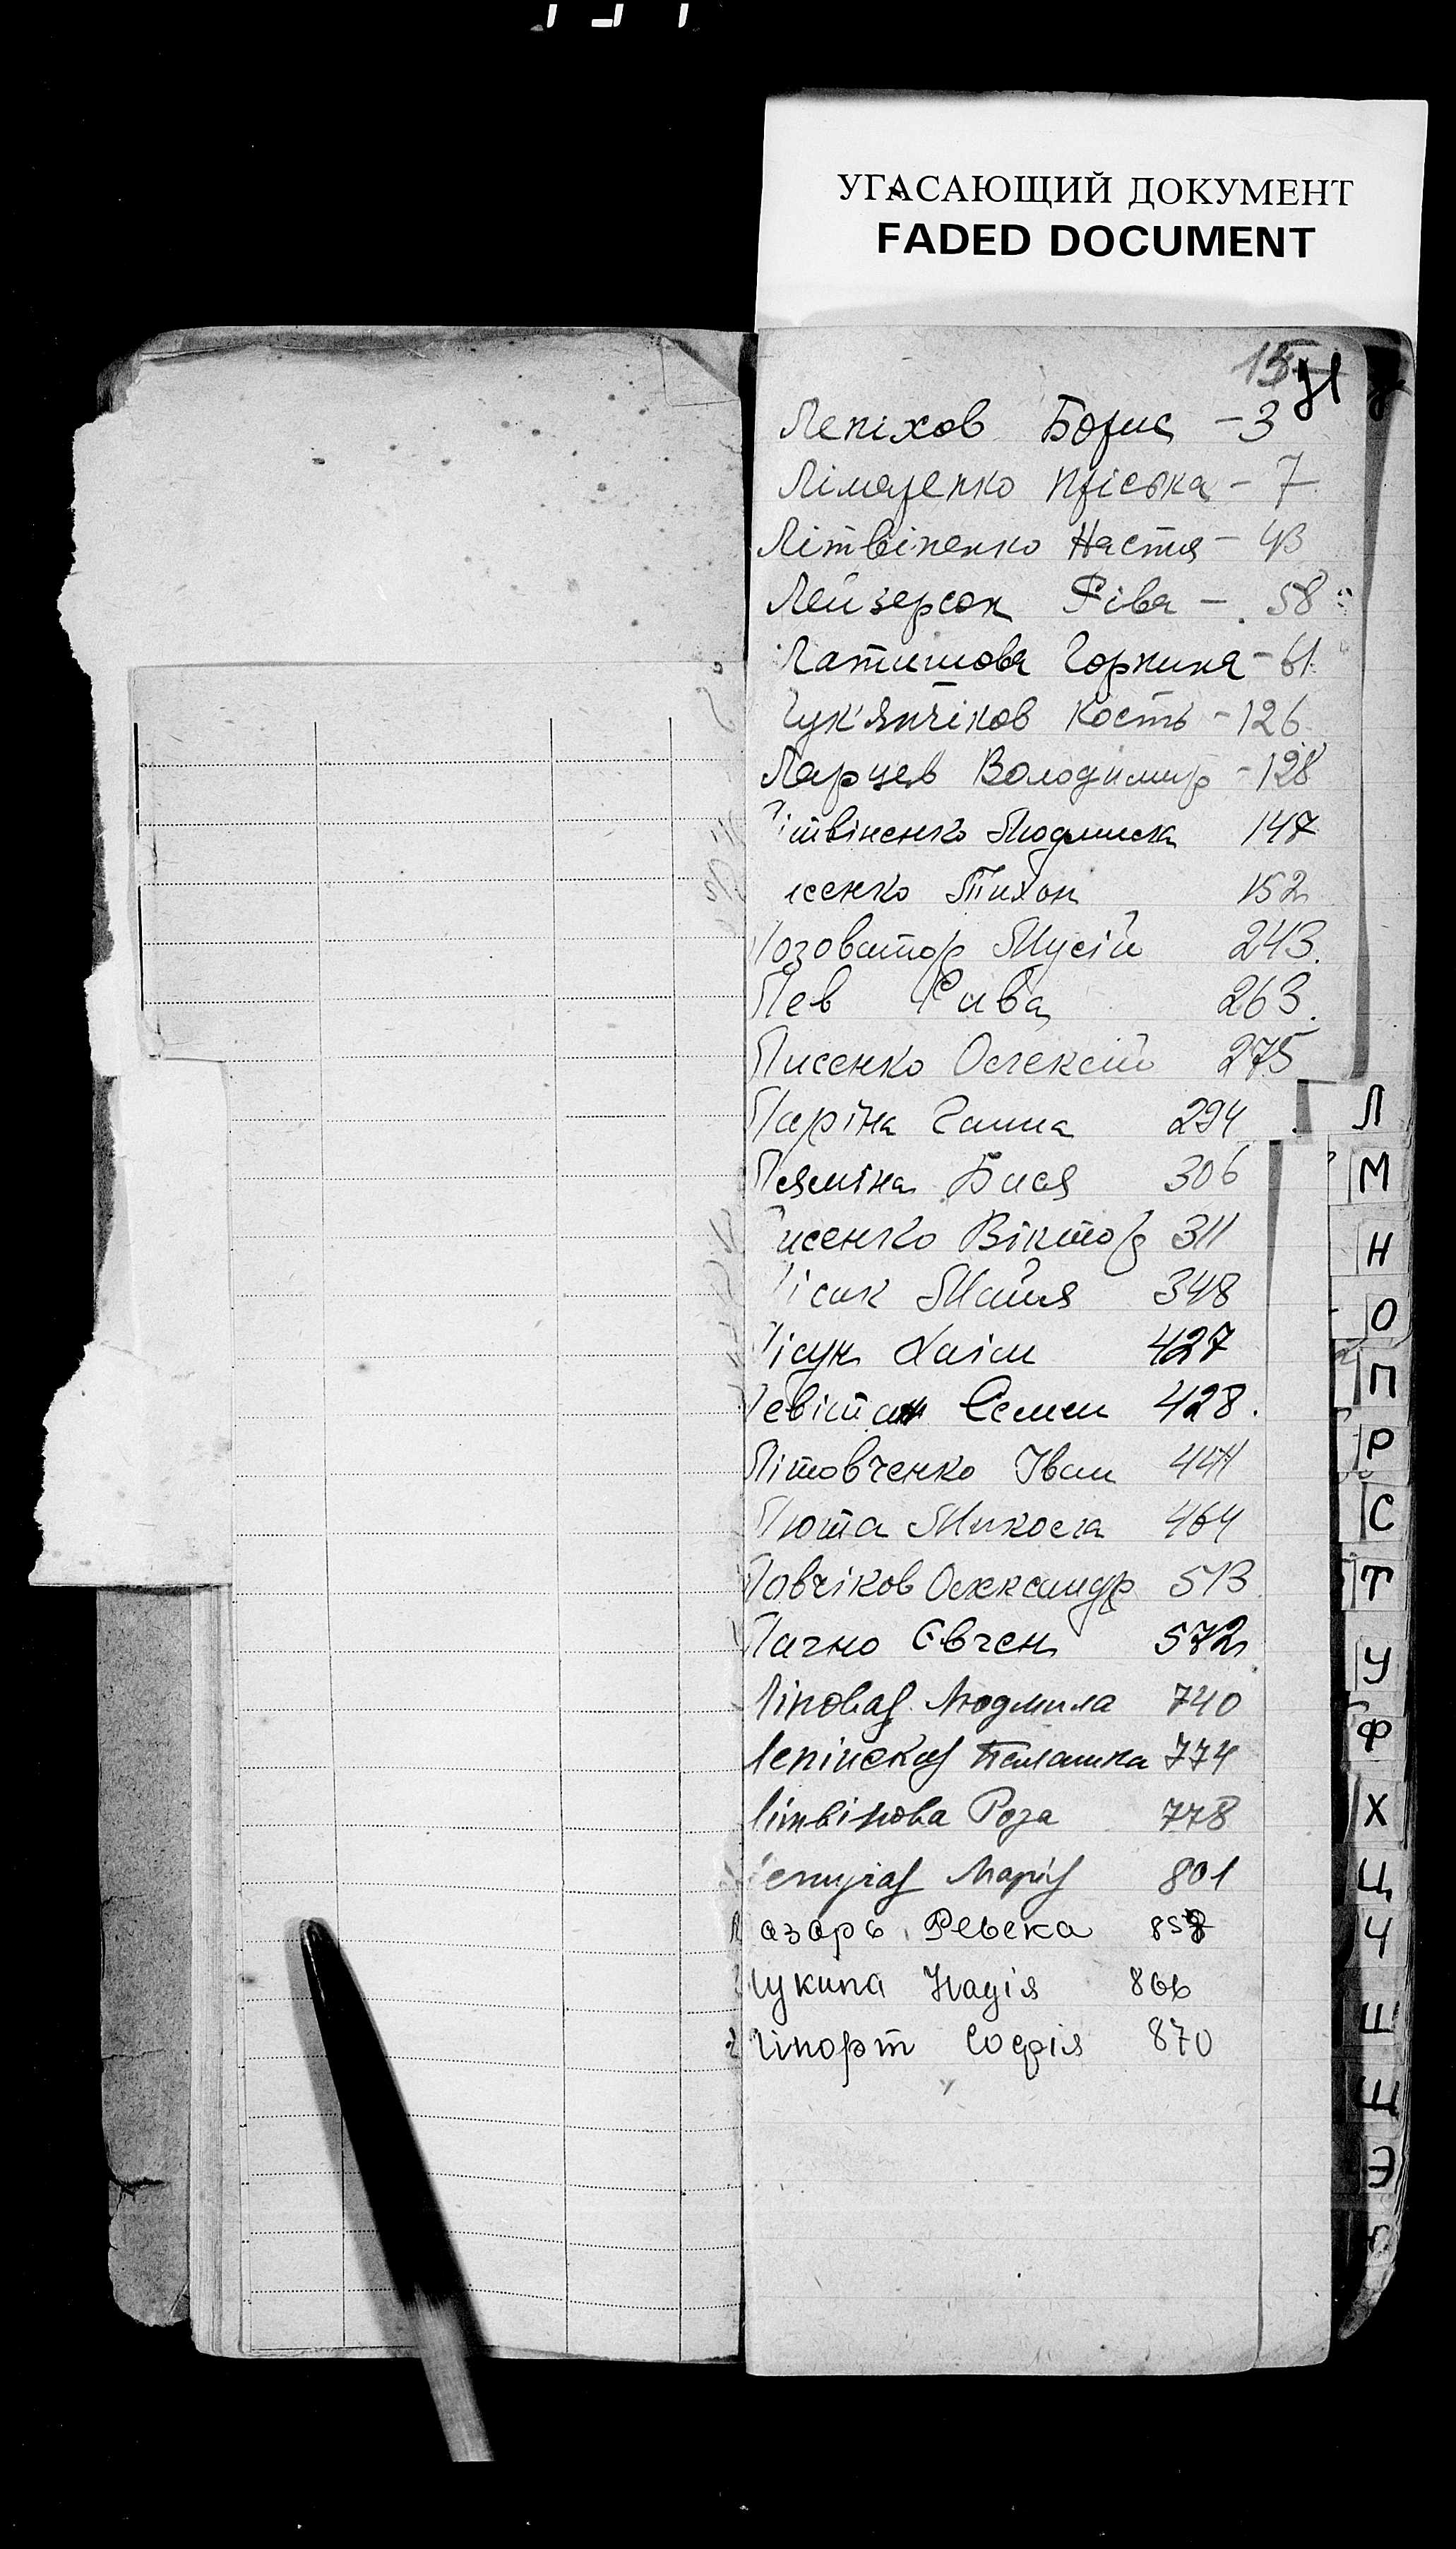 УГАСАЮЩИЙ ДОКУМЕНТ
FADED DOCUMENT
15
Лепіхов Борис - 3
Лімаренко Пріська - 7
Літвіненко Настя - 43
Лейзерсон Ріва - 58
Латишова Горпина - 61
Лук'янчіков Кость - 126
Ларцев Володимир - 128
Літвіненко Людмила 147
Лісенко Тихон 152
Лозоватор Мусій 243.
Лев Рива 263.
Лисенко Олексій 275
Ларіна Ганна 294
Лямiна Бася 306
Лисенко Віктор 311
Лісак Майя 348
Лісун Хаїм 427
Левітан Семен 428.
Літовченко Іван 441
Люта Микола 464
Ловчіков Олександр 513
Лачно Євген 572
Ліповая Людмила 740
Лепійская Палашка 774
Літвінова Роза 778
Марія 801
Лазарь Ревека
Лукина Надія 866
Ліпорт Софія 870
Л
М
Н
О
П
Р
С
Т
У
Ф
Х
Ц
Ч
Ш
Щ
Э